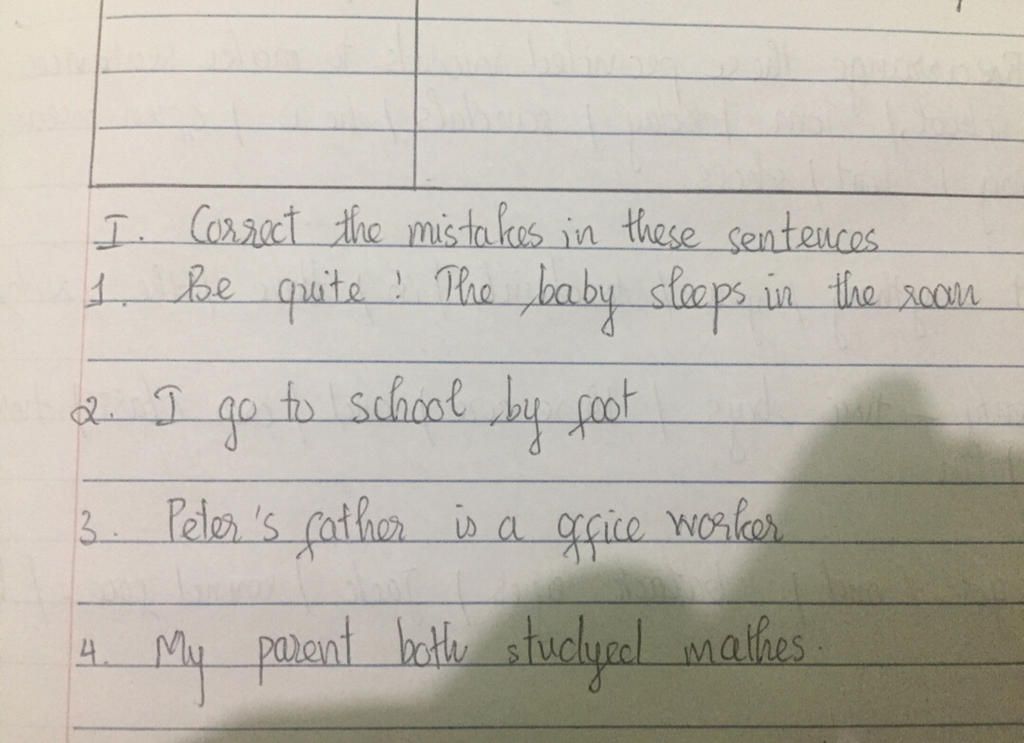 I. Correct the mistakes in these sentences
1. Be quite! The baby sleeps in the room
2. I go to school by foot
3. Peter's father is a office worker
4. My parent both studyed mathes.